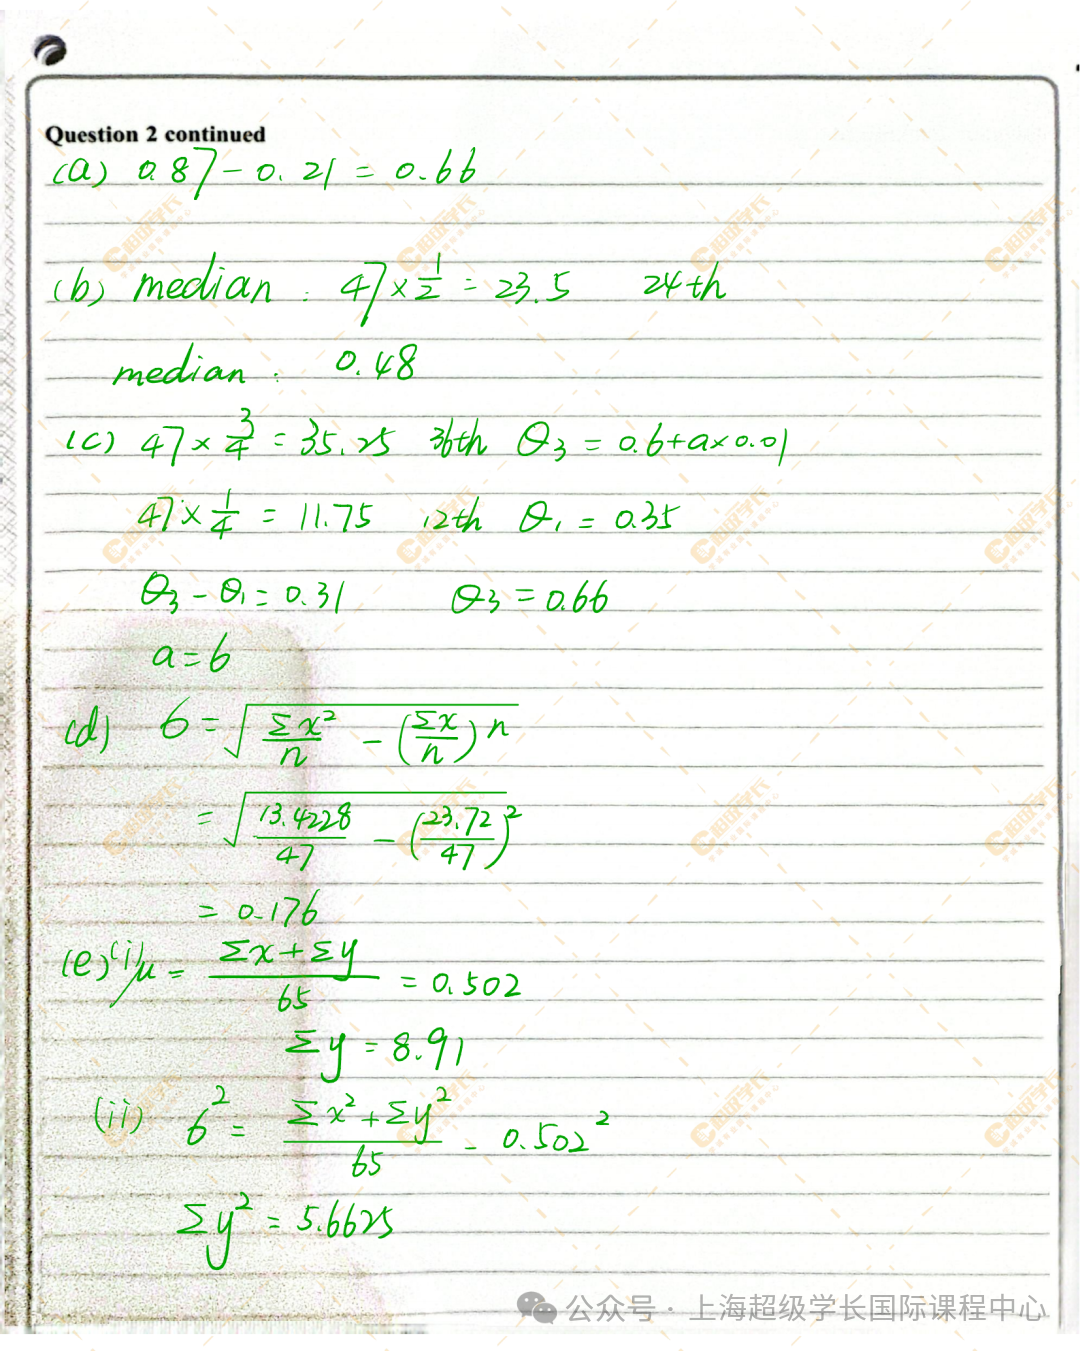 Question 2 continued
(a) 0.87 - 0.21 = 0.66
(b) median : 47 × 1/2 = 23.5 24th
median : 0.48
(c) 47 × 3/4 = 35.25 36th Q3 = 0.6 + a × 0.01
47 × 1/4 = 11.75 12th Q1 = 0.35
Q3 - Q1 = 0.31 Q3 = 0.66
a = 6
(d) σ = √(Σx²/n - (Σx/n)ⁿ)
= √(13.4228/47 - (23.72/47)²)
= 0.176
(e) (i) μ = (Σx + Σy)/65 = 0.502
Σy = 8.91
(ii) σ² = (Σx² + Σy²)/65 - 0.502²
Σy² = 5.6625
公众号 · 上海超级学长国际课程中心